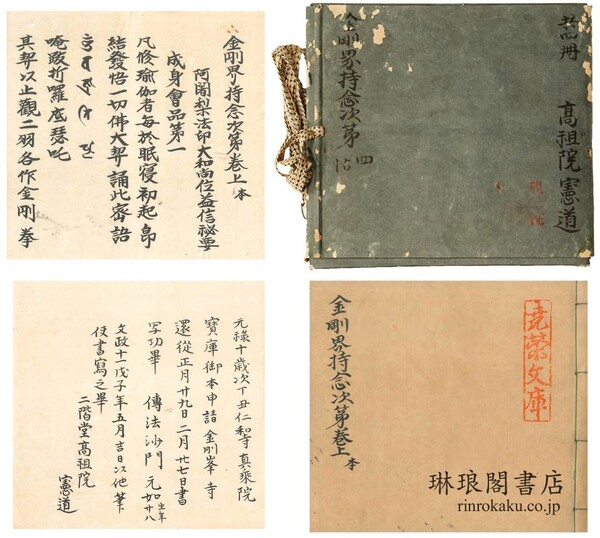 金剛界持念次第卷上 本
阿闍梨法印大和尚位益信祕要
成身會品第一
凡修瑜伽者每於眠寝初起即
結發悟一切佛大契誦此密語
唵跋折羅底瑟吒
其契以止觀二羽各作金剛拳
四册
高祖院憲道
金剛界持念次第 四帖
元禄十歳次丁丑仁和寺真乘院
寶庫御本申請金剛峯寺
還從正月廿九日二月廿七日書
写功畢 傳法沙門 元如 生年廿八
文政十一戊子年五月吉日以他筆
使書寫之畢
二階堂高祖院
憲道
尭榮文庫
金剛界持念次第卷上 本
琳琅閣書店
rinrokaku.co.jp